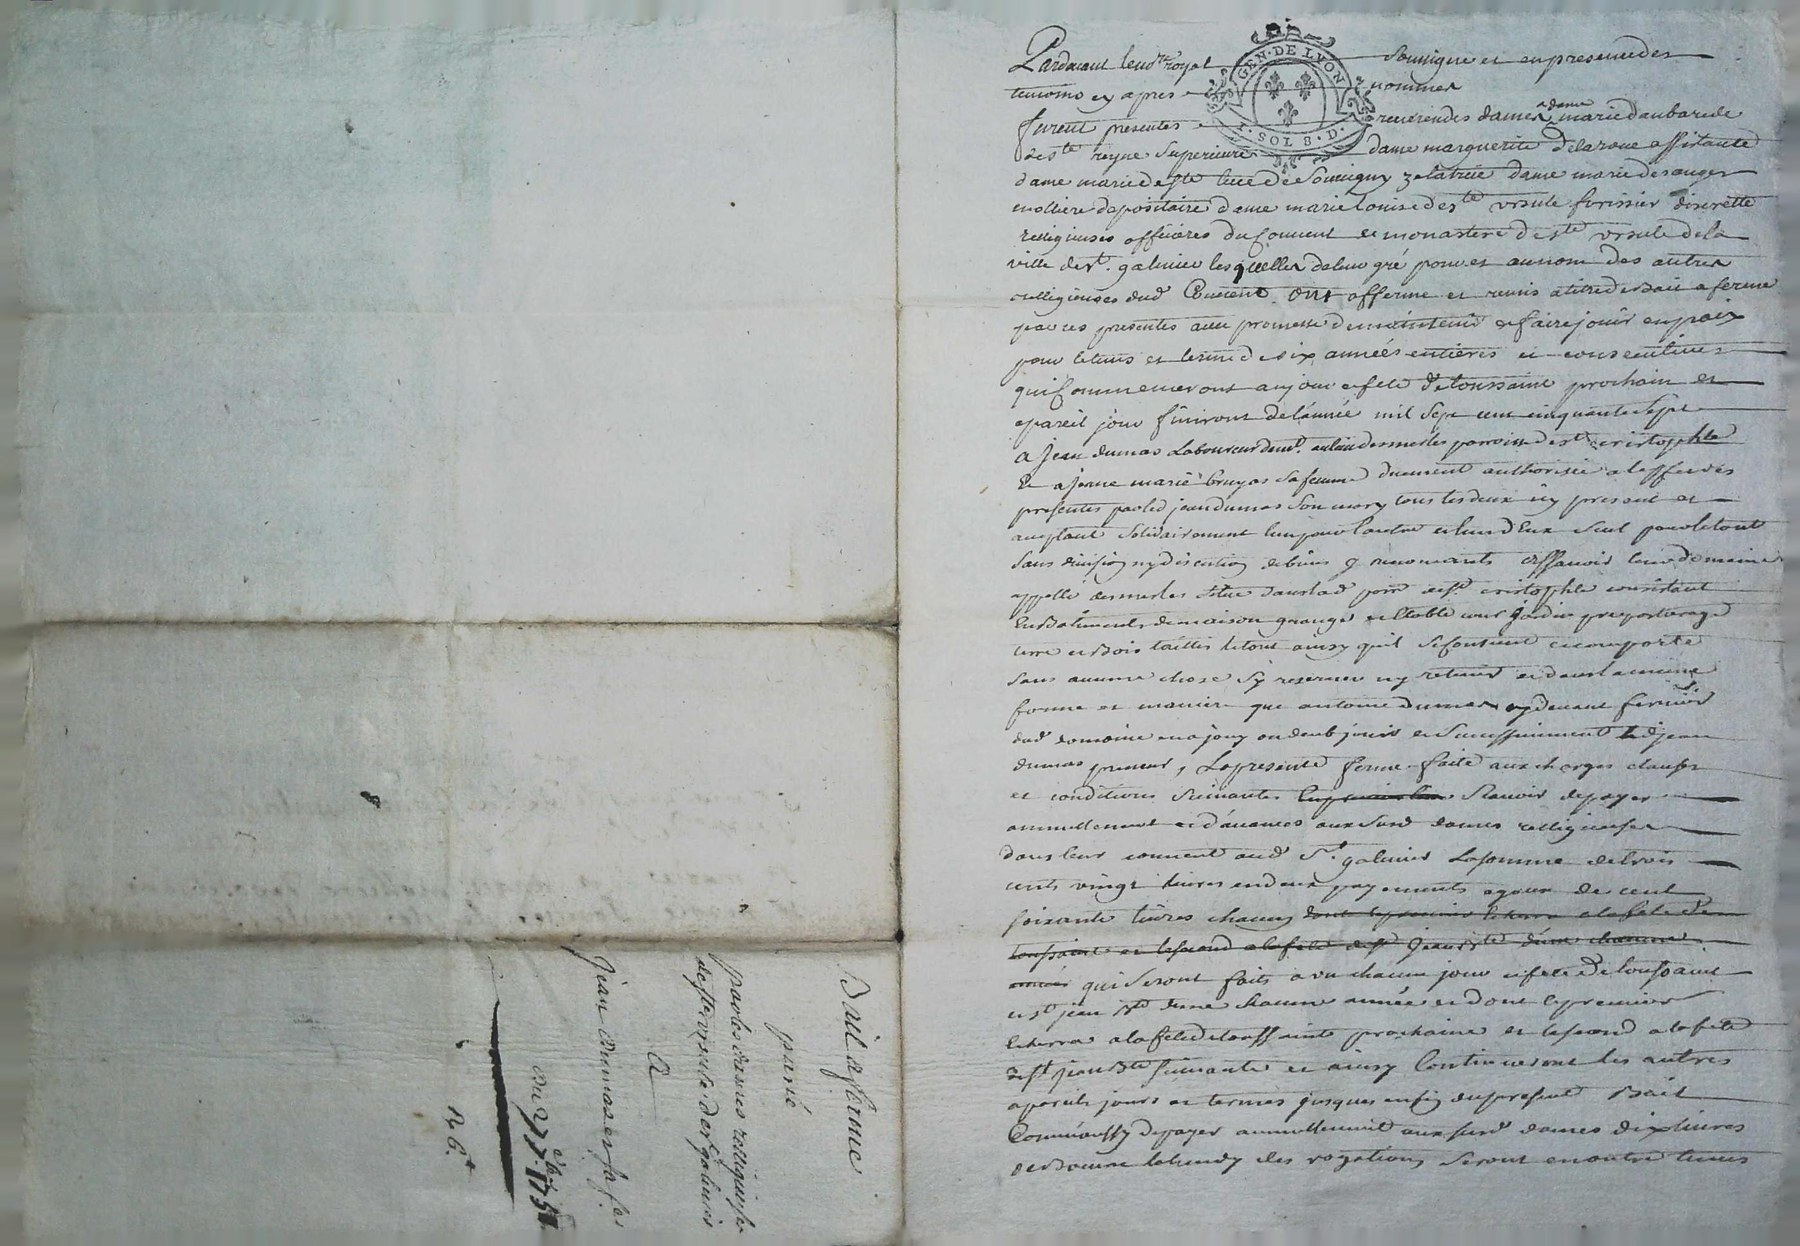 Pardevant le nore royal soussigné et en presence des
temoins cy apres nommes
furent presentes reverendes dames dame marie daubarede
de ste reyne superieure dame marguerite delaroue assistante
dame marie de ste luce de Souvigny zelatrice dame marie desanges
molliere depositaire dame marie louise de ste ursule forissier discrette
relligieuses officieres du Couvent et monastere de ste ursule de la
ville de st galmier lesquelles de leur gré pour et au nom des autres
relligieuses dud Couvent ont afferme et remis a titre de Bail a ferme
par ces presentes avec promesse de maintenir et faire jouir en paix
pour le tems et terme de six années entieres et consecutives
qui Commenceront au jour et fete de toussaint prochain et
a pareil jour finiront de lannée mil sept cent cinquante sept
a Jean dumas Laboureur demt au lieu desmerles parroisse de st cristophle
Et a jeanne marie bruyas sa femme duement authorisée a leffet des
presentes par led jean dumas son mary tous les deux icy present et
acceptant solidairement lun pour lautre et lun deux seul pour le tout
sans division ny discution de biens y renonceants assavoir leur domaine
appellé desmerles situé dans lad parr de st cristophle consistant
En Batiments de maison grange etable cour Jardin pre paturage
terre et Bois taillis le tout ainsy quil se contient et comporte
sans aucune chose sy reserver ny retenir et dans la meme
forme et maniere que antoine dumas cydevant fermier
dud domaine en a jouy ou deub jouir et successivement led jean
dumas preneur, La presente ferme faite aux charges clauses
et conditions suivantes Scavoir de payer
annuellement et davances aux susd dames relligieuses
dans leur couvent aud St galmier La somme de trois
cents vingt livres en deux payements egaux de cent
soixante livres chacun dont le premier Echerra a la fete de
toussaint et le second a la fete de st Jean Bte dune chacune
année qui seront faits a un chacun jour et fete de toussaint
et st jean Bte dune chacune année et dont le premier
Echerra a la fete de toussaint prochaine et le second a la fete
de st jean Bte suivante et ainsy Continueront les autres
a pareils jours et termes jusques en fin du present Bail
Comme aussy de payer annuellement aux susd dames dix livres
de Beurre le lundy des rogations seront en outre tenus
Bail a ferme
passé
par les dames relligieuses
de ste ursule de st galmier
A
Jean dumas et sa fe
du 27 7bre 1751